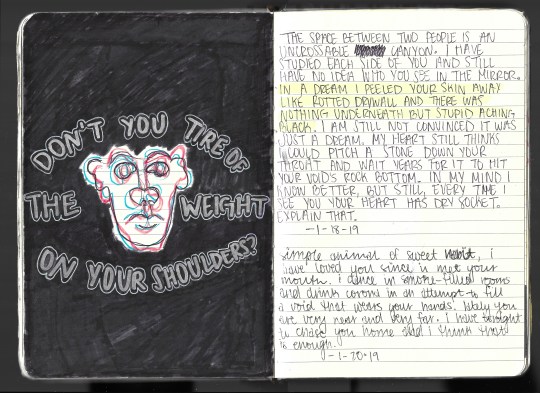 DON'T YOU TIRE OF
THE WEIGHT
ON YOUR SHOULDERS?
THE SPACE BETWEEN TWO PEOPLE IS AN
UNCROSSABLE CANYON. I HAVE
STUDIED EACH SIDE OF YOU AND STILL
HAVE NO IDEA WHO YOU SEE IN THE MIRROR.
IN A DREAM I PEELED YOUR SKIN AWAY
LIKE ROTTED DRYWALL AND THERE WAS
NOTHING UNDERNEATH BUT STUPID ACHING
BLACK. I AM STILL NOT CONVINCED IT WAS
JUST A DREAM. MY HEART STILL THINKS
I WOULD PITCH A STONE DOWN YOUR
THROAT AND WAIT YEARS FOR IT TO HIT
YOUR VOID'S ROCK BOTTOM. IN MY MIND I
KNOW BETTER, BUT STILL, EVERY TIME I
SEE YOU YOUR HEART HAS DRY SOCKET.
EXPLAIN THAT.
-1-18-19
simple animal of sweet habit, i
have loved you since i met your
mouth. i dance in smoke-filled rooms
and drink coronas in an attempt to fill
a void that wears your hands. lately you
are very near and very far. i have thought
to chase you home and i think that
is enough.
-1-20-19